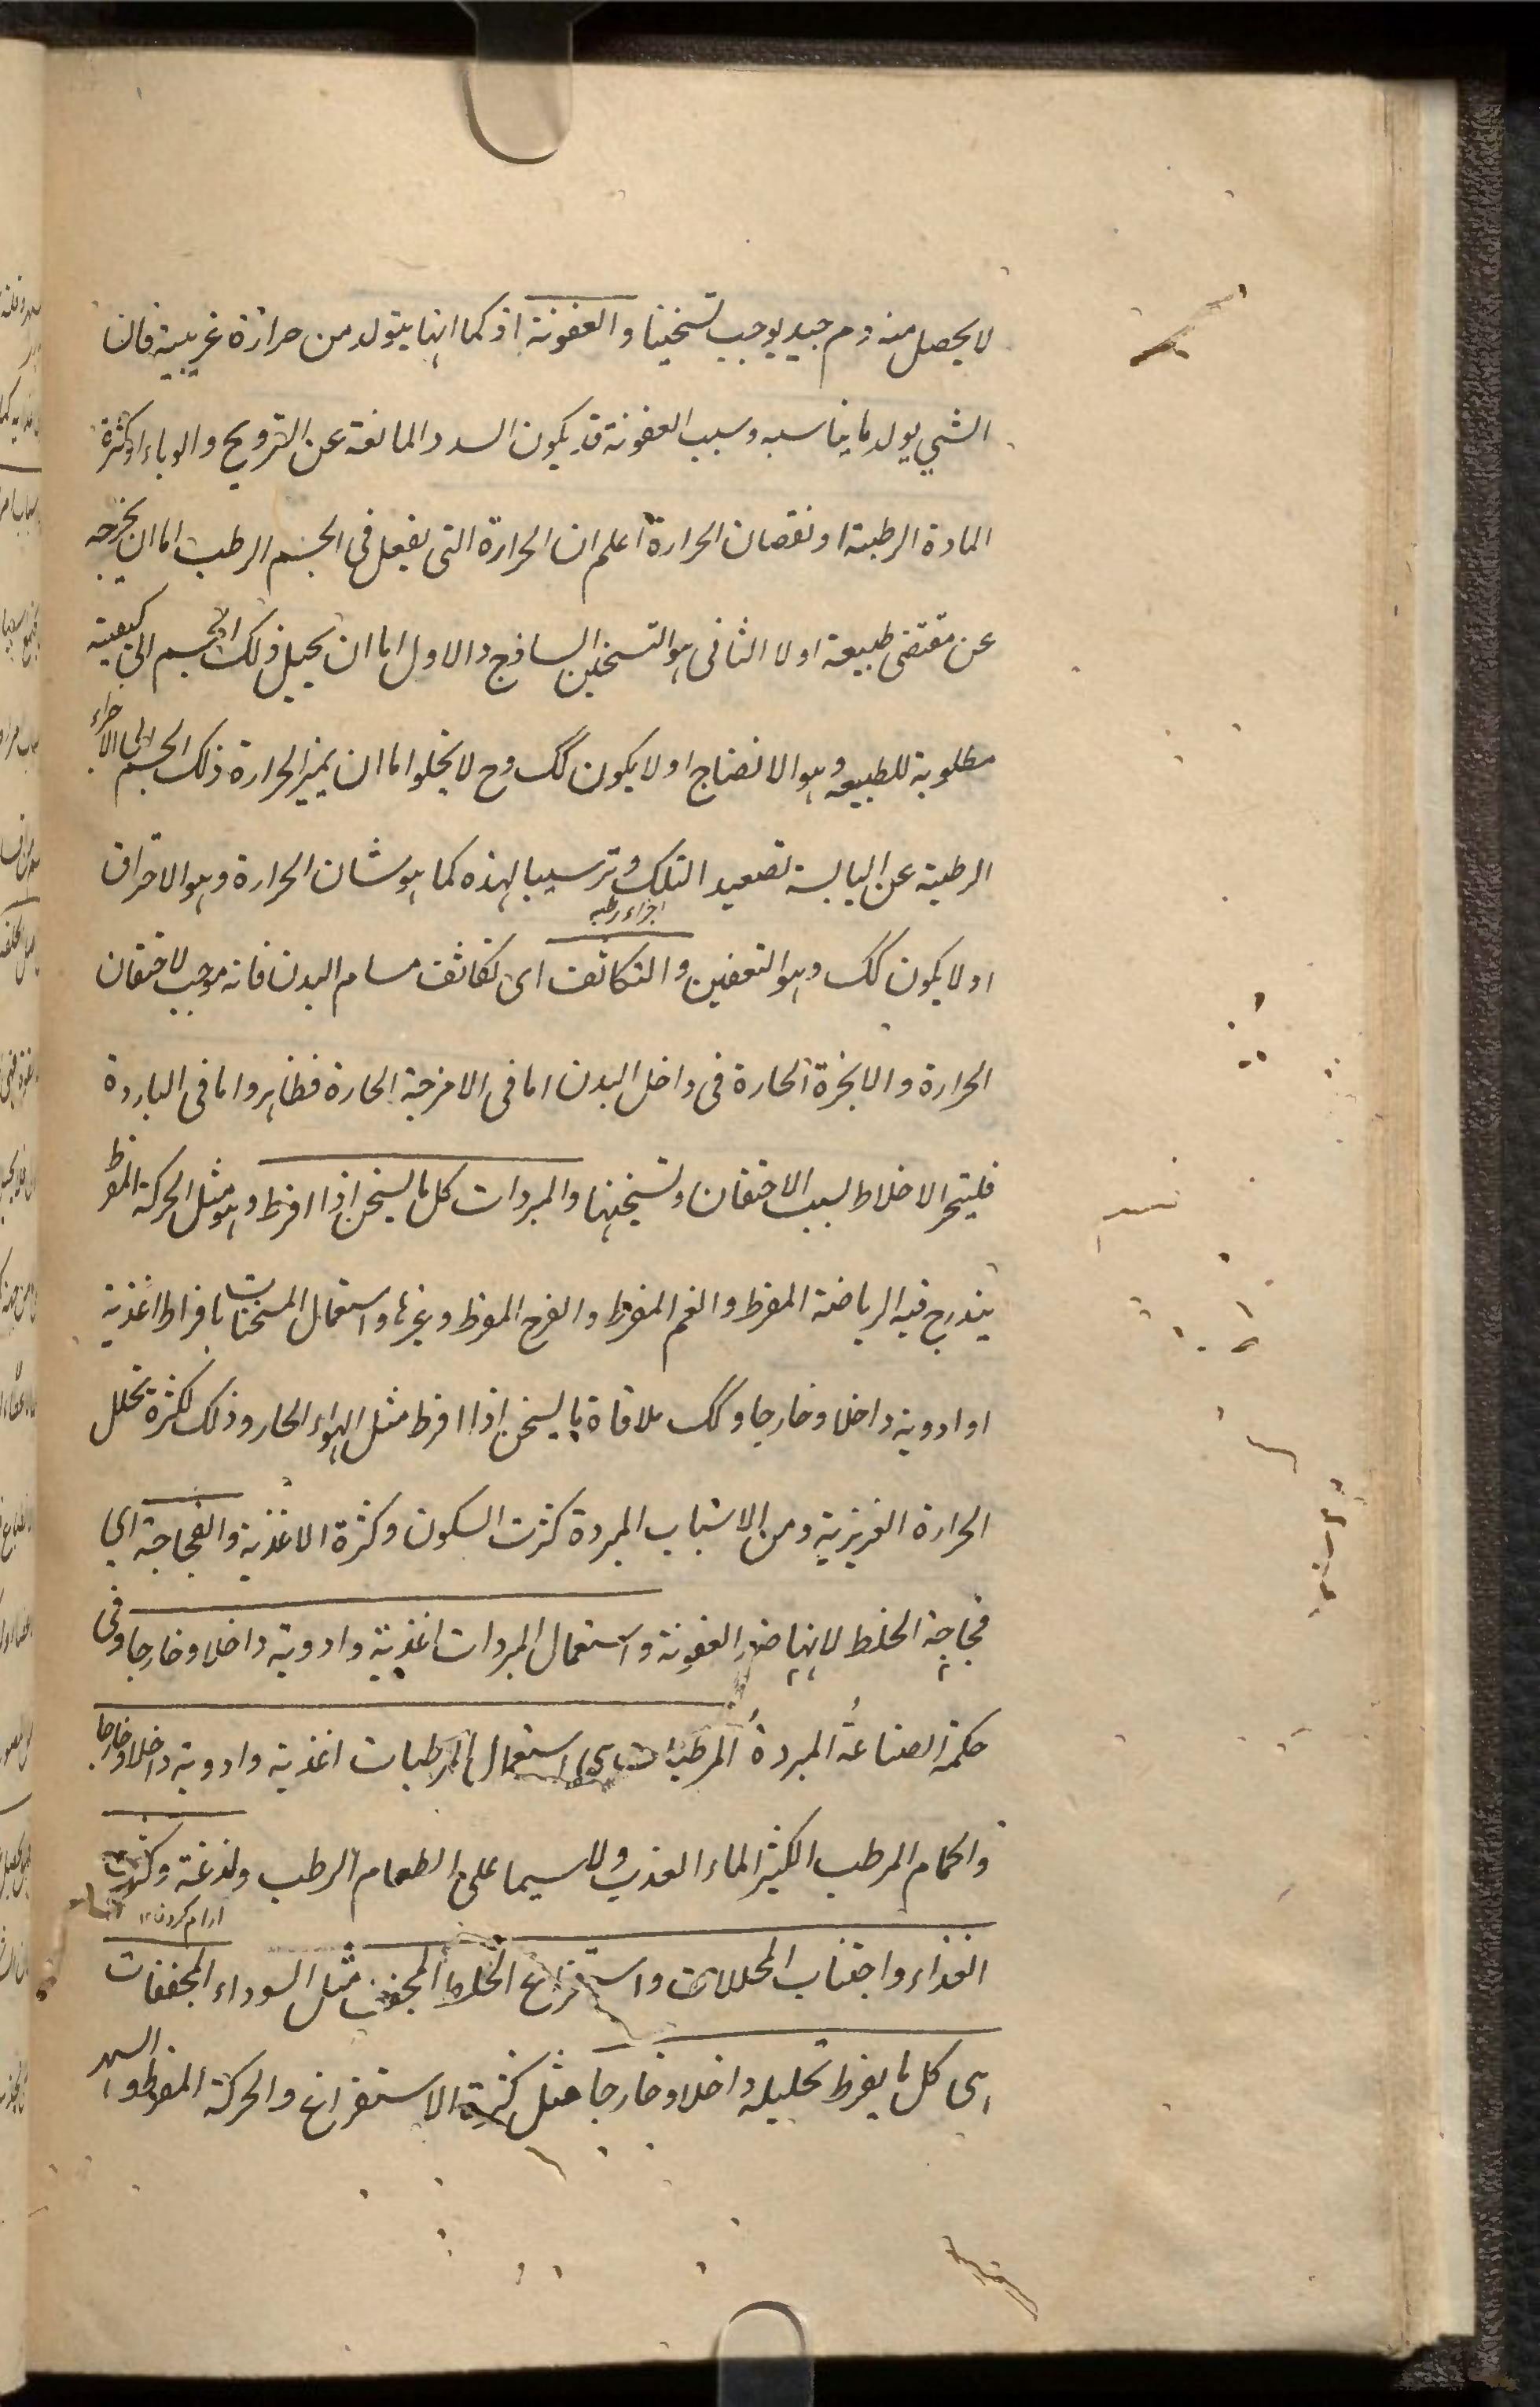 لا يحصل منه دم جيد يوجب تسخينا والعفونة اذ كما انها يتولد من حرارة غريبية فان
الشي يولد ما يناسبه وسبب العفونة قد يكون السدد المانعة عن الترويح والوباء او كثرة
المادة الرطبة او نقصان الحرارة اعلم ان الحرارة التى يفعل فى الجسم الرطب اما ان يخرجه
عن مقتضى طبيعة او لا الثانى هو التسخين الساذج والاول اما ان يحيل ذلك الجسم الى كيفية
مطلوبة للطبيعه وهو الانضاج او لا يكون كك وح لا يخلوا اما ان يميز الحرارة ذلك الجسم الى الاجزاء
الرطبة عن اليابسة تصعيد التلك وترسيبا لهذه كما هو شان الحرارة وهو الاحراق
اجزاء رطبه
او لا يكون كك وهو التعفين والتكاثف اى تكاثف مسام البدن فانه موجب لاحتقان
الحرارة والابخرة الحارة فى داخل البدن اما فى الامزجة الحارة فظاهر واما فى الباردة
الاخلاط لسبب الاحتقان وتسخينها والمبردات كل ما يسخن اذا افرط وهو مثل الحركة المفرط
يندرج فيه الرياضة المفرط والغم المفرط والفرح المفرط وغيرها واستعمال المسخنات بافراط اغذية
او ادوية داخلا وخارجا وكك ملاقاة ما يسخن اذا افرط مثل الهواء الحار وذلك لكثرة تحلل
الحرارة الغريزية ومن الاسباب المبردة كثرت السكون وكثرة الاغذية والفجاجة اى
فجاجة الخلط لانها ضد العفونة واستعمال المبردات اغذية وادوية داخلا وخارجا وفى
حكمة الصناعة المبردة المرطبات اى استعمال المرطبات اغذية وادوية داخلا وخارجا
والحمام المرطب الكثير الماء العذب ولا سيما على الطعام الرطب والدعة وكثرت
ارام كردن ١٢
الغذاء واجتناب المحللات واستفراغ الخلط المجفف مثل السوداء المجففات
اى كل ما يفرط تحليله داخلا وخارجا مثل كثرة الاستفراغ والحركة المفرط والسهر